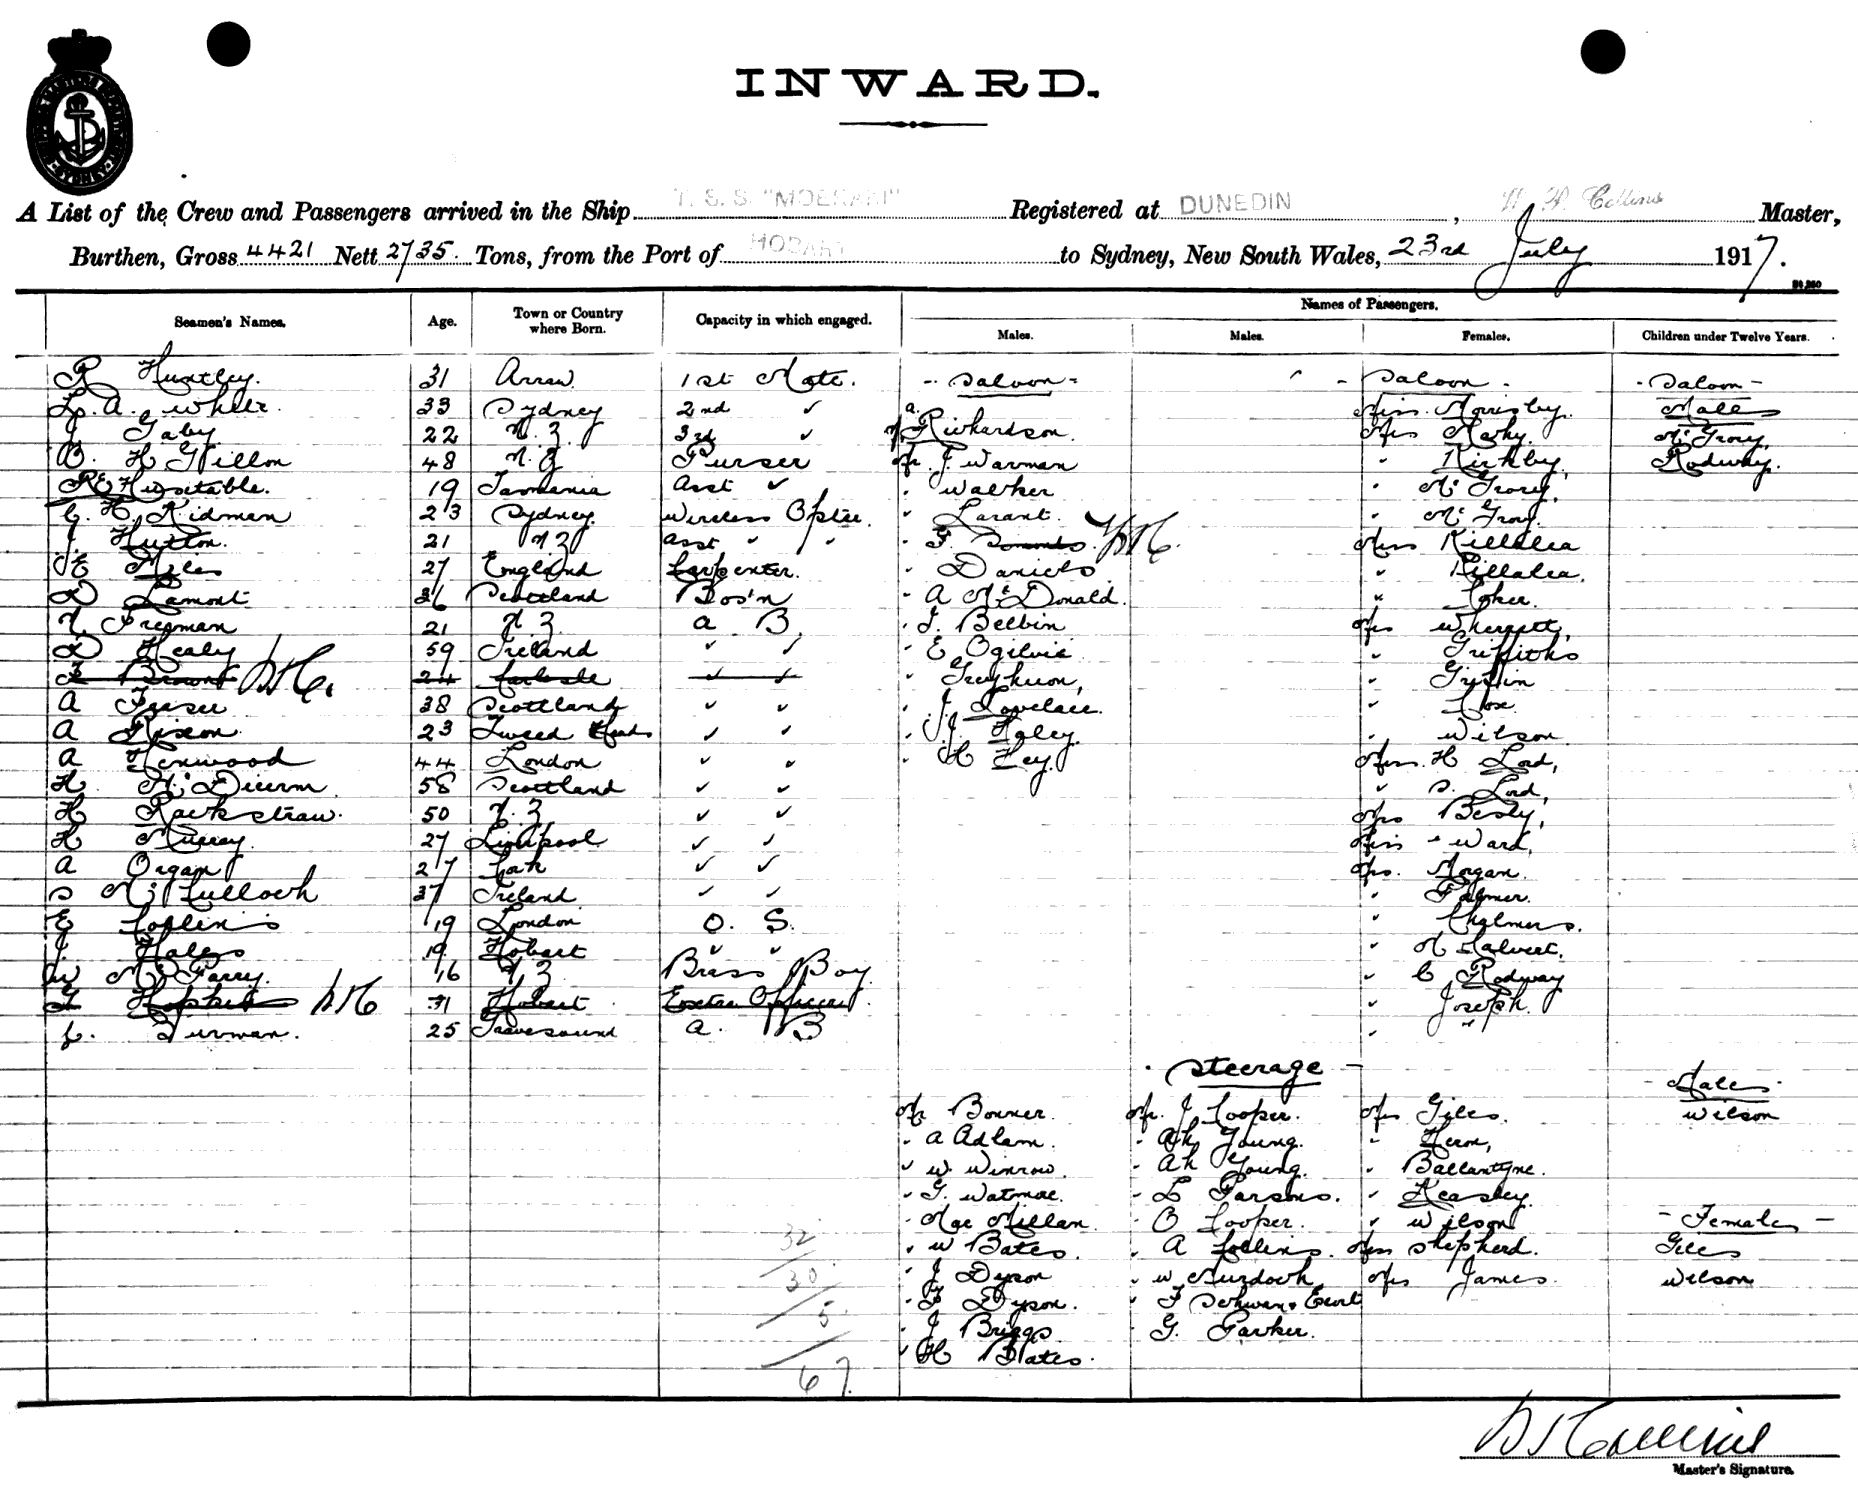 INWARD.
A List of the Crew and Passengers arrived in the Ship T. S. S. "MOERAKI" Registered at DUNEDIN, Collins Master,
Burthen, Gross 4421 Nett 2735 Tons, from the Port of HOBART to Sydney, New South Wales, 23rd July 1917.
Names of Passengers.
Seamen's Names. Age. Town or Country where Born. Capacity in which engaged. Males. Males. Females. Children under Twelve Years.
R Huntley. 31 Arrow 1st Mate. - Saloon - - Saloon - - Saloon -
A. 33 Sydney 2nd ✓ Miss Morrisby. Males
J Gaby 22 N. Z 3rd ✓ Richardson. Mrs McGrory,
B. H Gillon 48 N. Z Purser Mr J. Warman " Kirkby, Rodway.
Huxtable. 19 Tasmania Asst ✓ " Walker " McGrory,
C. H. Kidman 23 Sydney Wireless Opter. " Larant. "
J. Hutton. 21 N Z Asst " " " F. Miss Killalea
E Miles 27 England Carpenter. " Daniels " Killalea.
D Lamont 36 Scotland Bos'n " A McDonald. " Loker.
N. Freeman 21 N. Z. A B " J. Belbin Mrs
D Healy 59 Ireland " " " E Ogilvie " Griffiths
F Brown 24 Carlisle ✓ ✓ " "
A Fraser 38 Scotland ✓ ✓ " J. Lovelace. " Rose
A Rixon 23 Tweed Heads ✓ ✓ " J. Haley. " Wilson
A Henwood 44 London ✓ ✓ " H Hey. Miss H Lord,
H. 58 Scotland ✓ ✓ " S. Lord,
H Rackstraw. 50 N. Z ✓ ✓ Mrs
H Murray. 27 Liverpool ✓ ✓ Miss " Ward,
A Organ 27 Cork ✓ ✓ Mrs. Morgan.
S McCulloch 37 Ireland ✓ ✓ " Palmer.
E Collins 19 London O. S. " Chalmers.
J. Hales 19 Hobart " " " M Calvert.
W McParry. 16 N. Z Brass Boy " C Rodway
31 Hobart Extra Officer " Joseph.
C. 25 A. B " "
- Steerage - Males
Mr Bonner. Mr. J Cooper. Mrs Giles. Wilson
" A Adlam. " Ah Young. " Heron,
" W. Winrow. " Ah Young. " Ballantyne.
" G. " L Parsons. " Keasley.
" MacMillan. " O Cooper. " Wilson - Females -
" W Bates. " A Collins. Miss Shepherd. Giles
" J Dyson " W Murdoch Mrs James. Wilson
" F Dyson. " F
" J Briggs " G. Parker.
" H Bates.
32
30
5
67
Collins
Master's Signature.